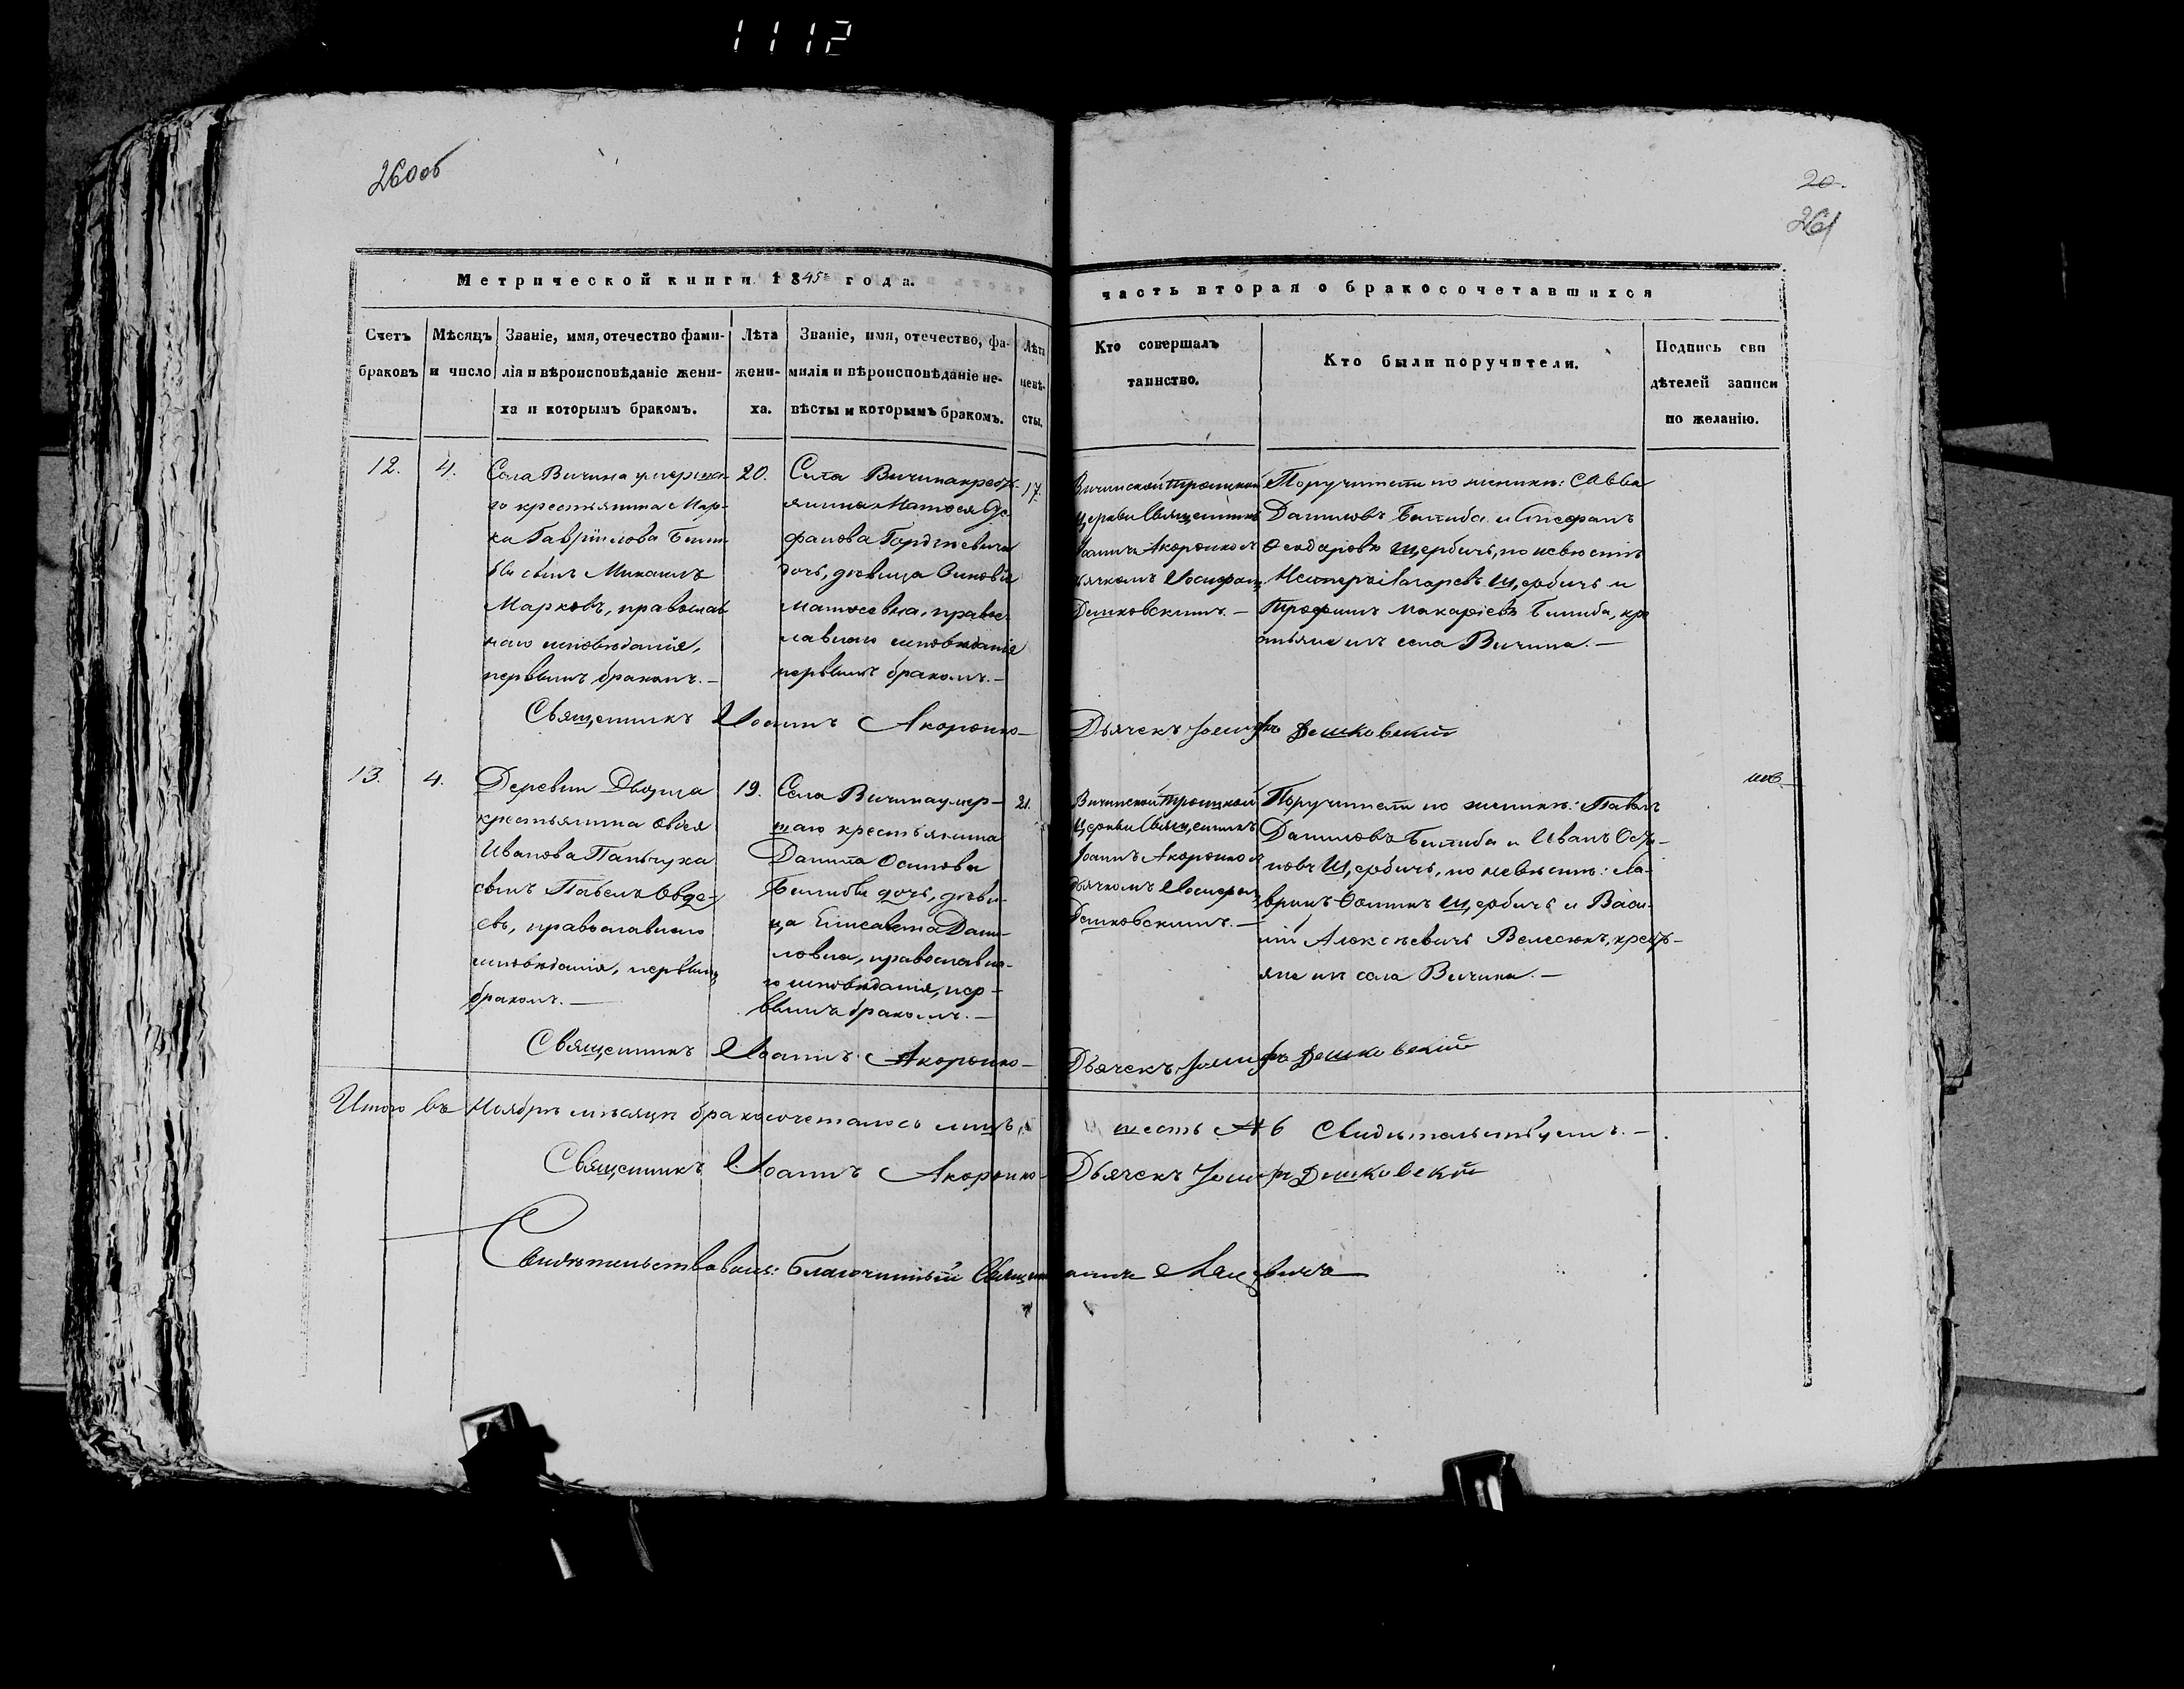 1112
260об
20.
261
Метрической книги 1845 года.
часть вторая о бракосочетавшихся
Счетъ браковъ
Мѣсяцъ и число
Званіе, имя, отечество фами-
лія и вѣроисповѣданіе жени-
ха и которымъ бракомъ.
Лѣта
жени-
ха.
Званіе, имя, отечество, фа-
милія и вѣроисповѣданіе не-
вѣсты и которымъ бракомъ.
Лѣта
невѣ-
сты.
Кто совершалъ
таинство.
Кто были поручители.
Подпись сви
дѣтелей записи
по желанію.
12.
4.
Села Вичина умерша-
го крестьянина Мар-
ка Гавріилова
сынъ Михаилъ
Марковъ, православ
наго исповѣданія,
первымъ бракомъ.—
20.
Села Вичина кресть-
янина Матѳея
фанова Гордѣевича
дочь, дѣвица Зиновія
Матѳеевна, правос-
лавнаго исповѣданія
первымъ бракомъ.—
17.
Вичинской Троицкой
церкви Священникъ
Іоаннъ Акоронко съ
дьячкомъ Іосифомъ
Дешковскимъ.—
Поручители по женихѣ: Савва
Даниловъ Билиба и Стефанъ
Ѳеодоровъ Щербичъ, по невѣстѣ
Несторъ Лазаревъ Щербичъ и
Трофимъ Макаріевъ Билиба, кре
стьяне изъ села Вичина.—
Священникъ Іоаннъ Акоронко—
Дьячекъ Іосифъ Дешковскій
13.
4.
Деревни Дворца
крестьянина Овдея
Иванова Панчуха
сынъ Павелъ Овде-
евъ, православнаго
исповѣданія, первымъ
бракомъ.—
19.
Села Вичина умер-
шаго крестьянина
Данила Осипова
Билибы дочь, дѣви-
ца Елисавета Дани-
ловна, православна-
го исповѣданія, пер-
вымъ бракомъ.—
21.
Вичинской Троицкой
Церкви Священникъ
Іоаннъ Акоронко съ
дьячкомъ Іосифомъ
Дешковскимъ.—
Поручители по женихѣ: Павелъ
Даниловъ Билиба и Иванъ Оси-
повъ Щербичъ, по невѣстѣ: Ла-
вринъ Ѳоминъ Щербичъ и Васи-
лій Алексѣевичъ Велесюкъ, кресть-
яне изъ села Вичина.—
Священникъ Іоаннъ Акоронко—
Дьячекъ Іосифъ Дешковскій
Итого въ Ноябрѣ мѣсяцѣ бракосочеталось лицъ
шесть № 6 Свидѣтельствуемъ.—
Священникъ Іоаннъ Акоронко—
Дьячекъ Іосифъ Дешковскій
Свидѣтельствовалъ: Благочинный